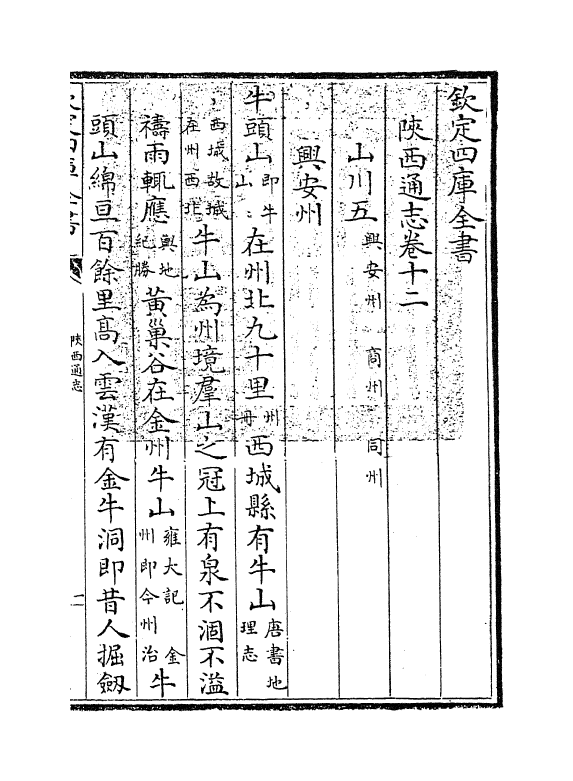 欽定四庫全書
陝西通志卷十二
山川五興安州 商州 同州
興安州
牛頭山即牛山在州北九十里州冊西城縣有牛山唐書地理志
西城故城在州西北牛山為州境羣山之冠上有泉不涸不溢
禱雨輒應輿地紀勝黃巢谷在金州牛山雍大記 金州即今州治牛
頭山綿亘百餘里高入雲漢有金牛洞即昔人掘劔
陝西通志